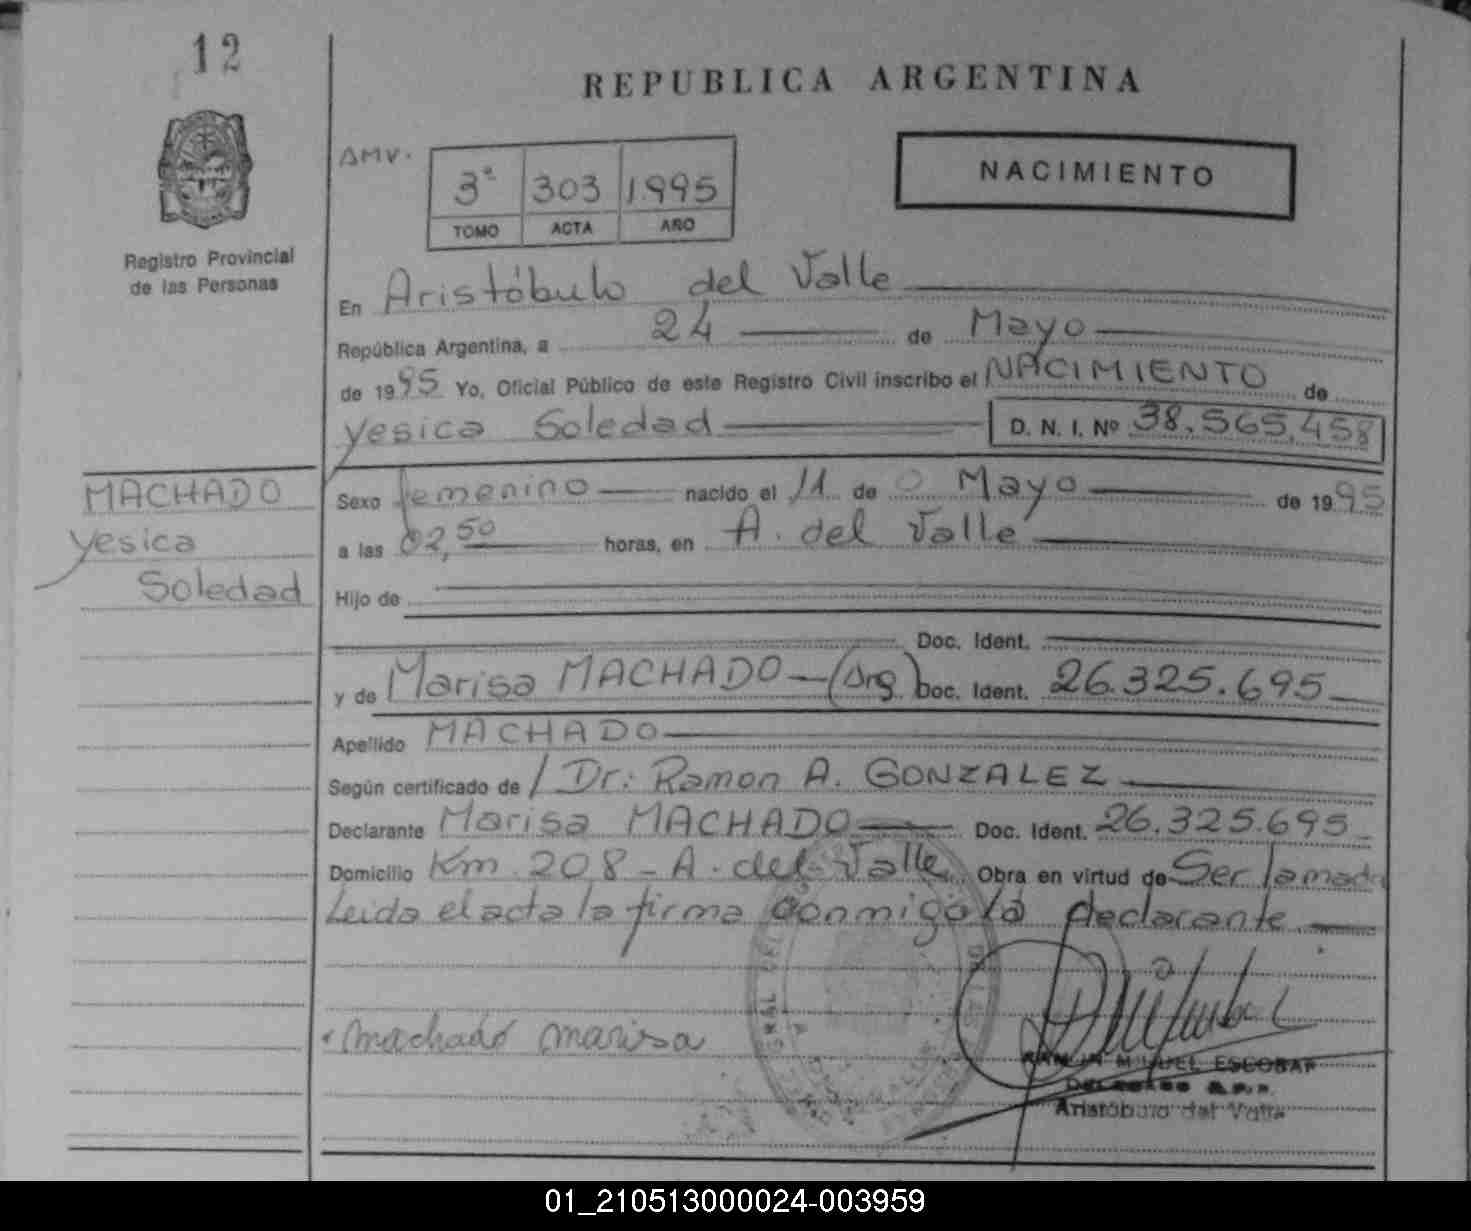 12
REPUBLICA ARGENTINA
Registro Provincial
de las Personas
AMV.
3ª 303 1.995
TOMO ACTA AÑO
NACIMIENTO
En Aristóbulo del Valle
República Argentina, a 24 de Mayo
de 1995 Yo, Oficial Público de este Registro Civil inscribo el NACIMIENTO de
yesica Soledad D. N. I. Nº 38.565.458
MACHADO
yesica
Soledad
Sexo femenino nacido el 11 de Mayo de 1995
a las 02,50 horas, en A. del Valle
Hijo de
Doc. Ident.
y de Marisa MACHADO (Arg) Doc. Ident. 26.325.695
Apellido MACHADO
Según certificado de Dr: Ramon A. GONZALEZ
Declarante Marisa MACHADO Doc. Ident. 26.325.695
Domicilio Km 208 - A. del Valle Obra en virtud de Ser
Leida el acta la firma conmigo la declarante
machado marisa
MIGUEL ESCOBAR
Aristóbulo del Valle
01_210513000024-003959